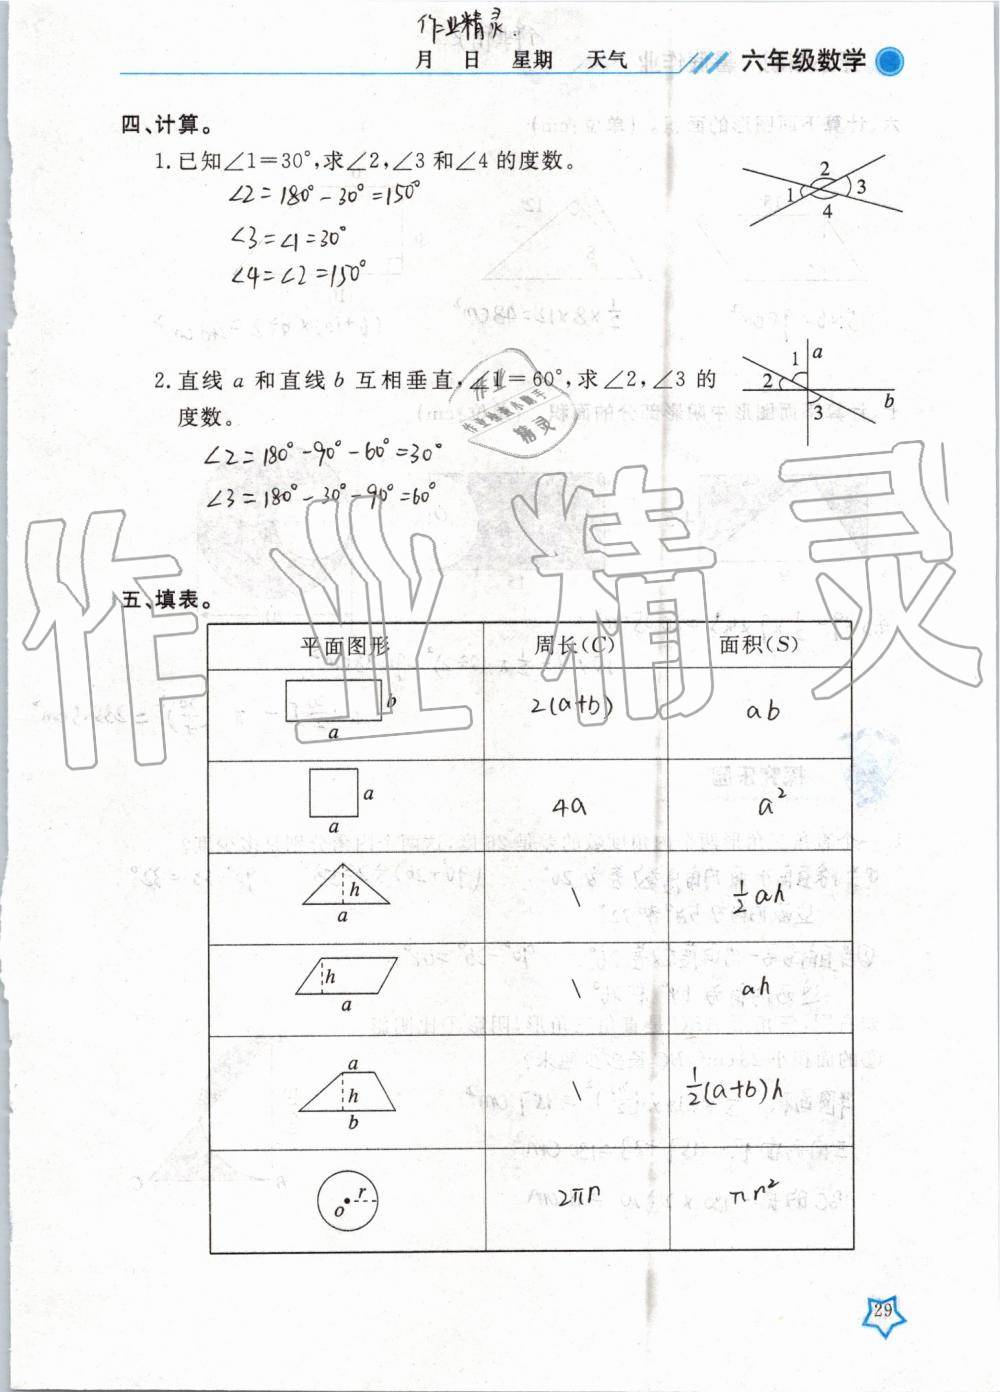 作业精灵.
月 日 星期 天气 六年级数学
四、计算。
1.已知∠1=30°,求∠2,∠3和∠4的度数。
∠2=180°-30°=150°
∠3=∠1=30°
∠4=∠2=150°
1 2 3 4
2.直线a和直线b互相垂直,∠1=60°,求∠2,∠3的
度数。
∠2=180°-90°-60°=30°
∠3=180°-30°-90°=60°
1 a
2 b
3
作业
精灵
作业精灵
五、填表。
平面图形 周长(C) 面积(S)
b a 2(a+b) ab
a a 4a a²
h a \ ½ah
h a \ ah
a h b \ ½(a+b)h
r o 2πr πr²
29